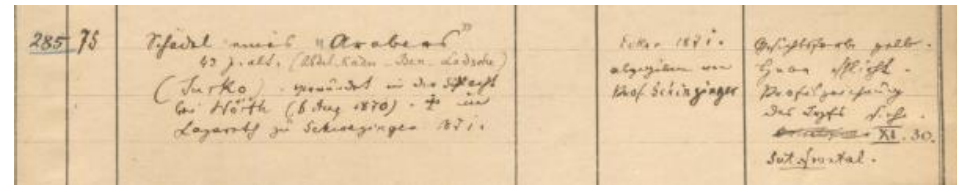 285 75
Schädel eines "Arabers"
43 J. alt. (Abdel-Kader-Ben-
(Turko) - verwundet in der Schlacht
bei Wörth (6 Aug 1870) - † im
Lazareth zu Schwetzingen 1871.
Ecker 1871.
abgegeben von
Prof Schinzinger
Gesichtsfarbe gelb.
Haare schlicht.
Profilzeichnung
des Kopfs siehe
XI. 30.
Sut. frontal.